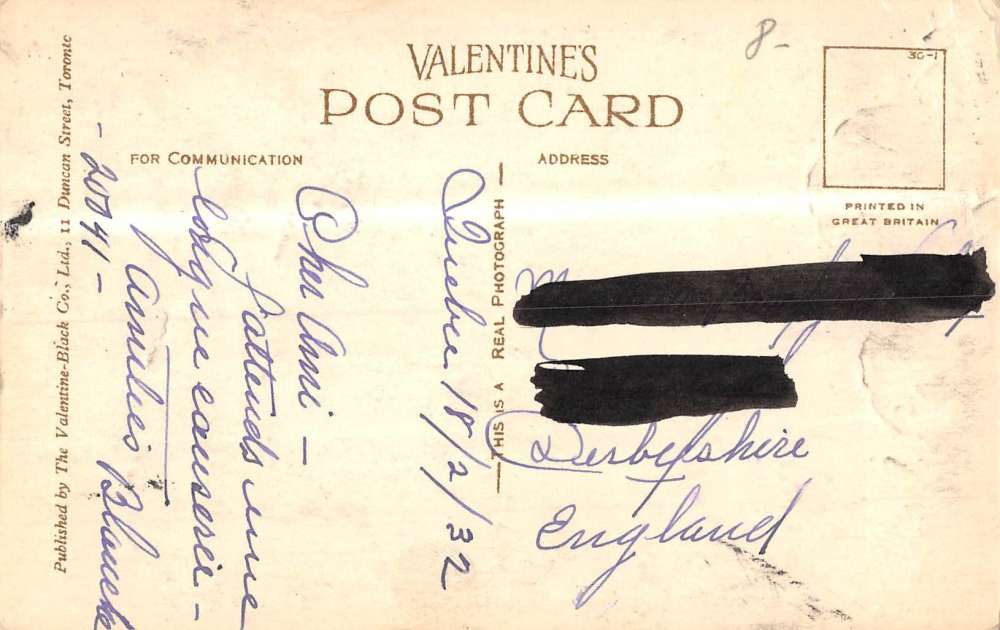 VALENTINE'S
POST CARD
FOR COMMUNICATION
ADDRESS
30-1
PRINTED IN
GREAT BRITAIN
8-
Quebec 18/2/32
Cher Ami —
J'attends une
longue causerie —
Amitiés Blanche
- 20041 -
THIS IS A REAL PHOTOGRAPH
Derbyshire
England
Published by The Valentine-Black Co., Ltd., 11 Duncan Street, Toronto